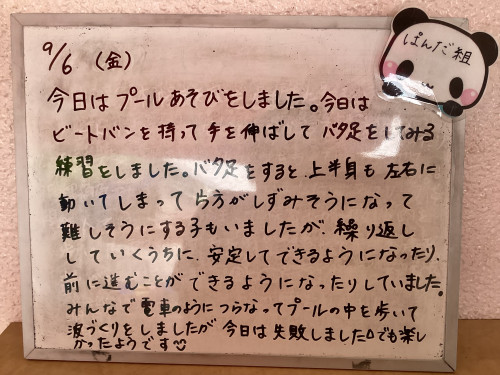 9/6 (金)
ぱんだ組
今日はプールあそびをしました。今日は
ビートバンを持って手を伸ばして バタ足をしてみる
練習をしました。バタ足をすると、上半身も左右に
動いてしまって 片方がしずみそうになって
難しそうにする子もいましたが、繰り返し
していくうちに、安定してできるようになったり、
前に進むことができるようになったりしていました。
みんなで電車のようにつらなってプールの中を歩いて
波づくりをしましたが 今日は失敗しました でも楽し
かったようです